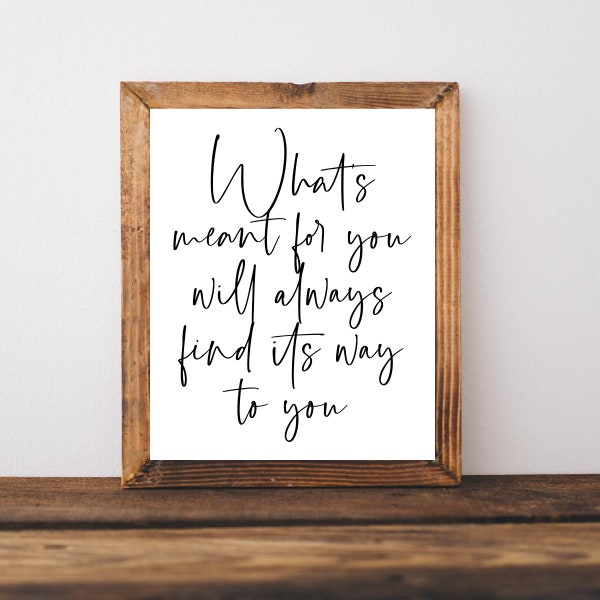 What's
meant for you
will always
find it's way
to you